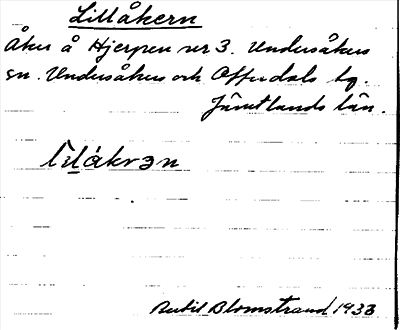 Lillåkern
Åker å Hjerpen nr 3. Undersåkers
sn. Undersåkers och Offerdals tg.
Jämtlands län.
lɪlåkrən
Bertil Blomstrand 1933